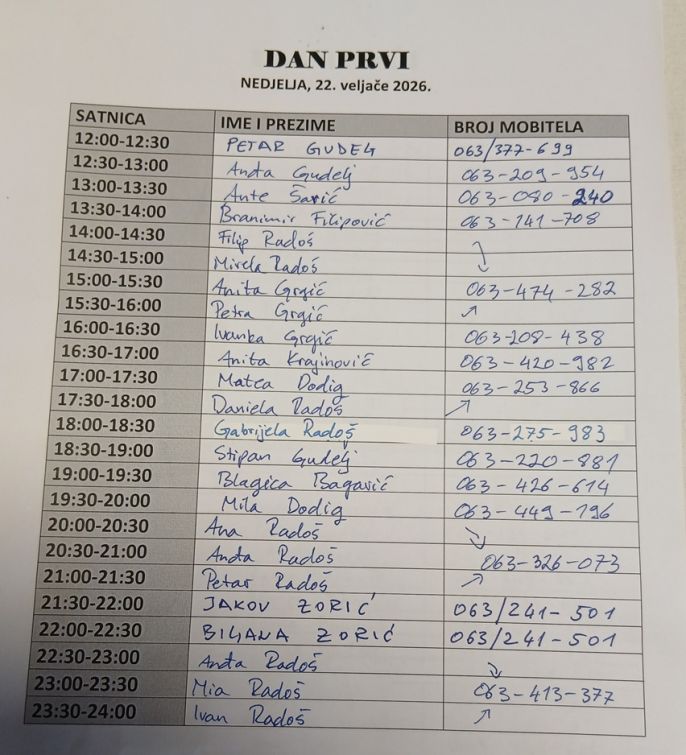 DAN PRVI
NEDJELJA, 22. veljače 2026.
SATNICA IME I PREZIME BROJ MOBITELA
12:00-12:30 PETAR GUDELJ 063/377-699
12:30-13:00 Anđa Gudelj 063-209-954
13:00-13:30 Ante Šarić 063-080-240
13:30-14:00 Branimir Filipović 063-141-708
14:00-14:30 Filip Radoš ↓
14:30-15:00 Mirela Radoš
15:00-15:30 Anita Grgić 063-474-282
15:30-16:00 Petra Grgić ↗
16:00-16:30 Ivanka Grgić 063-208-438
16:30-17:00 Anita Krajinović 063-420-982
17:00-17:30 Matea Dodig 063-253-866
17:30-18:00 Daniela Radoš ↗
18:00-18:30 Gabrijela Radoš 063-275-983
18:30-19:00 Stipan Gudelj 063-220-881
19:00-19:30 Blagica Bagarić 063-426-614
19:30-20:00 Mila Dodig 063-449-196
20:00-20:30 Ana Radoš ↘
20:30-21:00 Anđa Radoš 063-326-073
21:00-21:30 Petar Radoš ↗
21:30-22:00 JAKOV ZORIĆ 063/241-501
22:00-22:30 BILJANA ZORIĆ 063/241-501
22:30-23:00 Anđa Radoš ↘
23:00-23:30 Mia Radoš 063-413-377
23:30-24:00 Ivan Radoš ↗